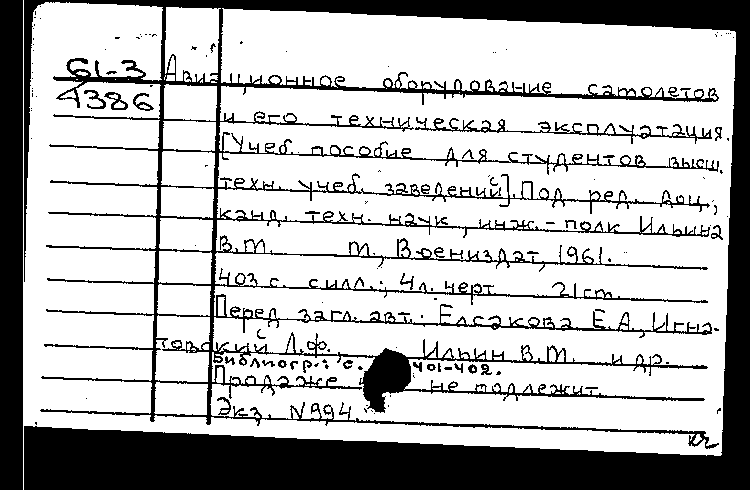 61-3 Авиационное оборудование самолетов
4386
и его техническая эксплуатация.
[Учеб. пособие для студентов высш.
техн. учеб. заведений]. Под ред. доц.,
канд. техн. наук, инж.-полк Ильина
В.М. М., Воениздат, 1961.
403 с. с илл.; 4 л. черт 21 см.
Перед загл. авт.: Елсакова Е.А., Игна-
товский Л.Ф., Ильин В.М. и др.
Библиогр.: с. 401-402.
Продаже не подлежит.
Экз. N994.